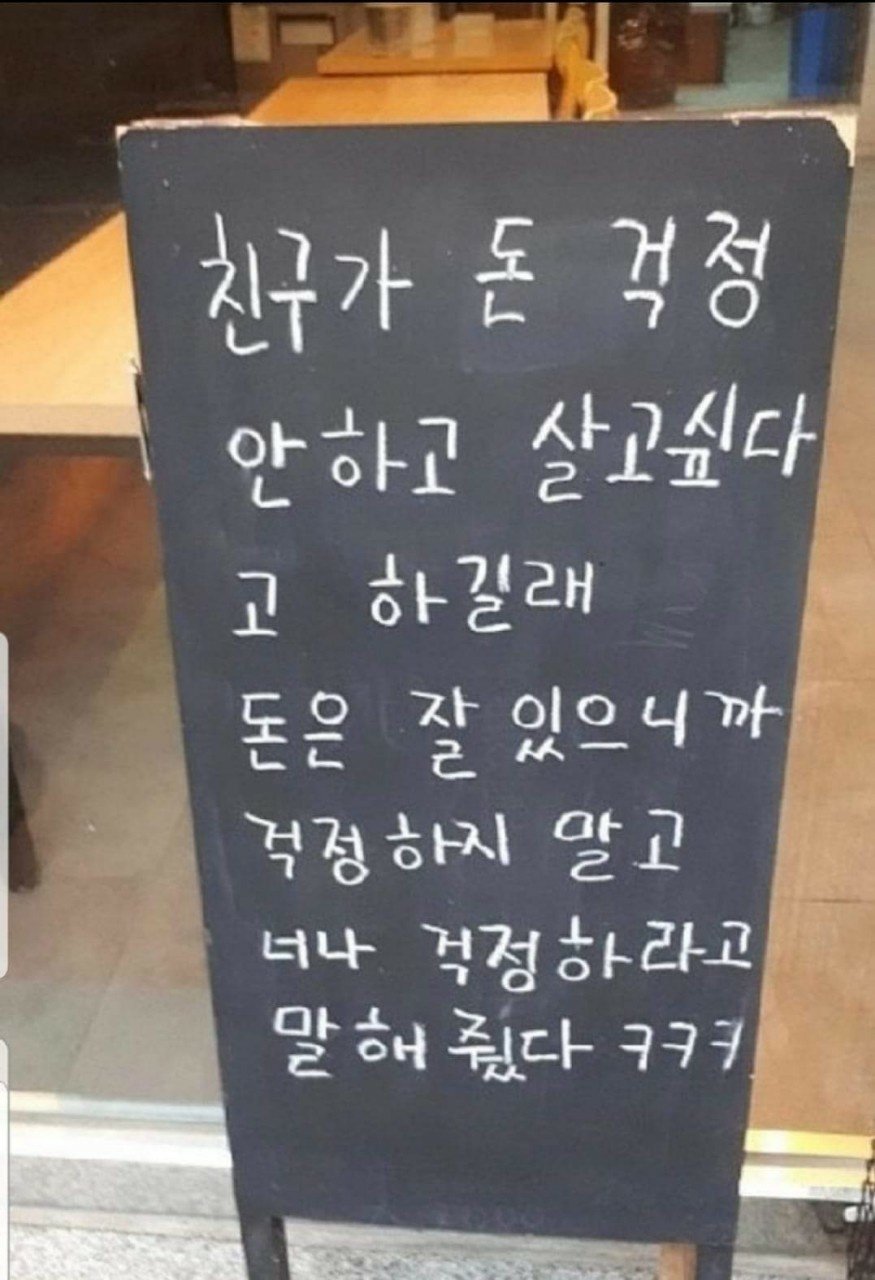 친구가 돈 걱정
안하고 살고싶다
고 하길래
돈은 잘 있으니까
걱정하지 말고
너나 걱정하라고
말해 줬다 ㅋㅋㅋ